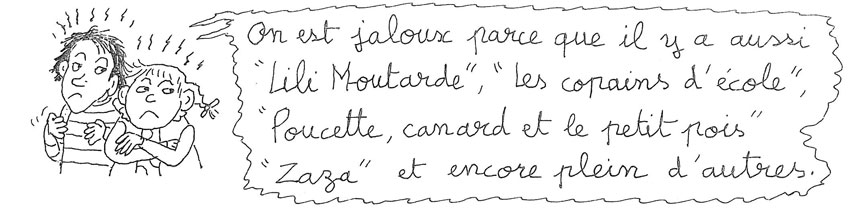 On est jaloux parce que il y a aussi
"Lili Moutarde", "Les copains d'école",
"Poucette, canard et le petit pois"
"Zaza" et encore plein d'autres.